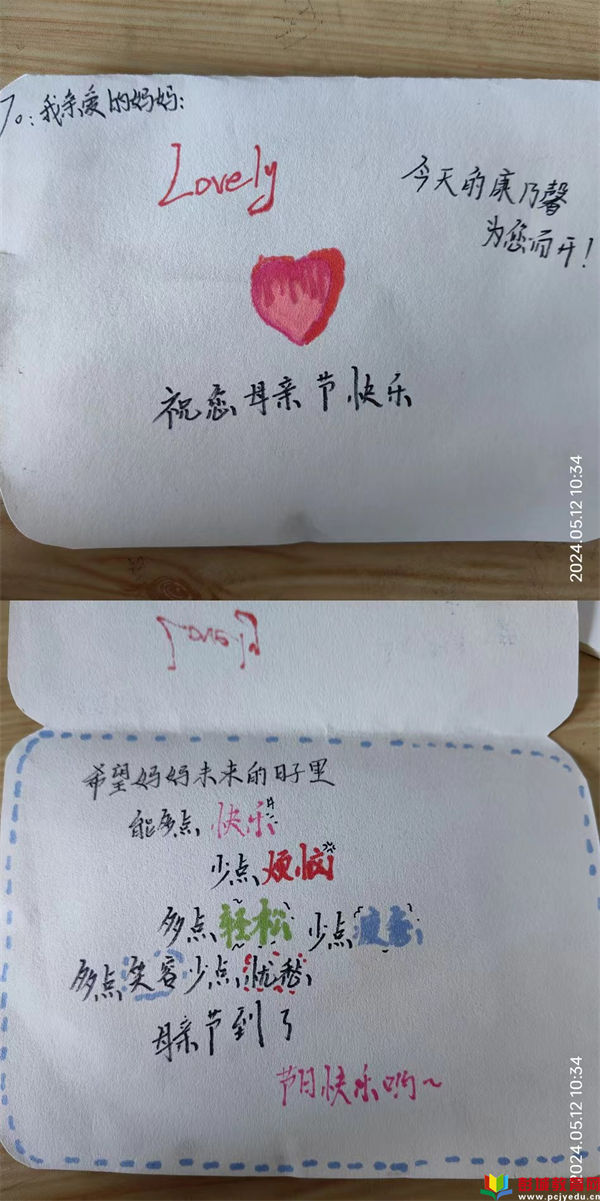 To:我亲爱的妈妈:
Lovely
今天的康乃馨
为您而开!
祝您母亲节快乐
2024.05.12 10:34
Lovely
希望妈妈未来的日子里
能多点快乐
少点烦恼
多点轻松 少点疲惫
多点笑容少点忧愁
母亲节到了
节日快乐哟~
2024.05.12 10:34
www.pcjyedu.cn